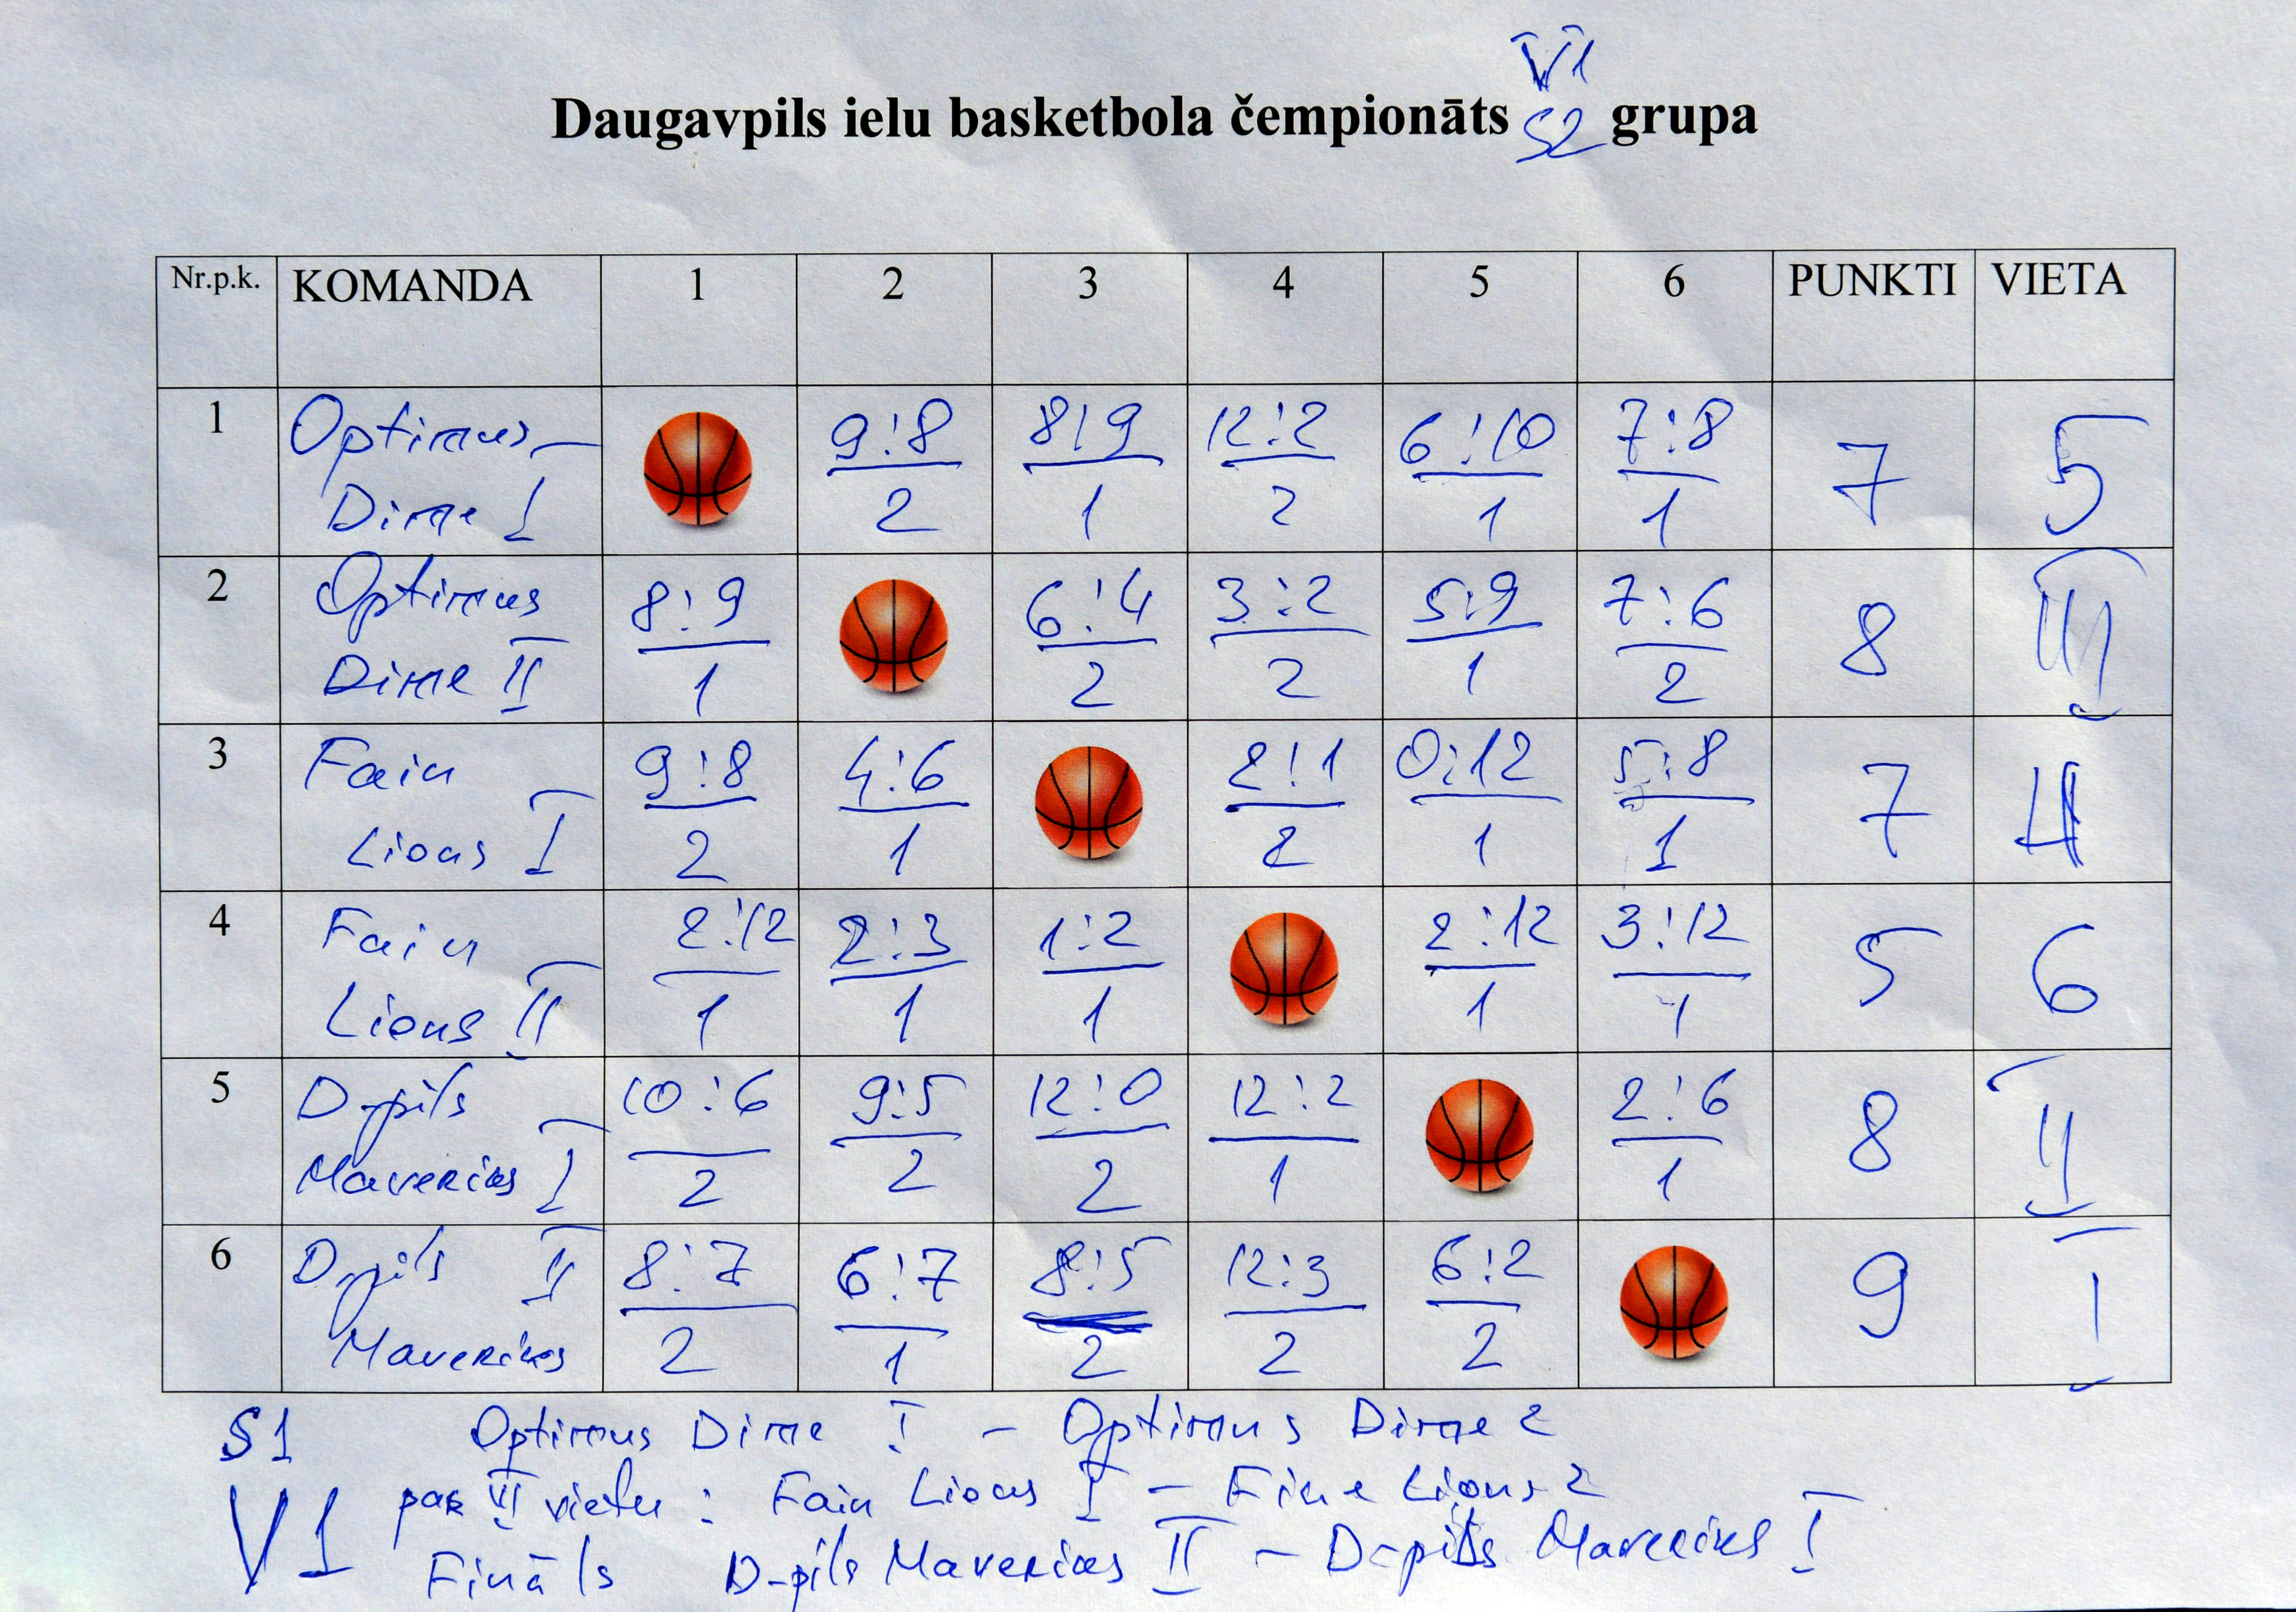 V1
Daugavpils ielu basketbola čempionāts S2 grupa
Nr.p.k. KOMANDA 1 2 3 4 5 6 PUNKTI VIETA
1 Optimus Dime I 9:8 8:9 12:2 6:10 7:8 7 5
2 1 2 1 1
2 Optimus Dime II 8:9 6:4 3:2 5:9 7:6 8 III
1 2 2 1 2
3 Fain Lions I 9:8 4:6 2:1 0:12 5:8 7 4
2 1 2 1 1
4 Fain Lions II 2:12 2:3 1:2 2:12 3:12 5 6
1 1 1 1 1
5 D-pils Mavericks I 10:6 9:5 12:0 12:2 2:6 8 II
2 2 2 1 1
6 D-pils II Mavericks 8:7 6:7 8:5 12:3 6:2 9 I
2 1 2 2 2
S1 Optimus Dime I - Optimus Dime 2
V1 par vietu: Fain Lions I - Fine Lions 2
Fināls D-pils Mavericks II - D-pils Mavericks I